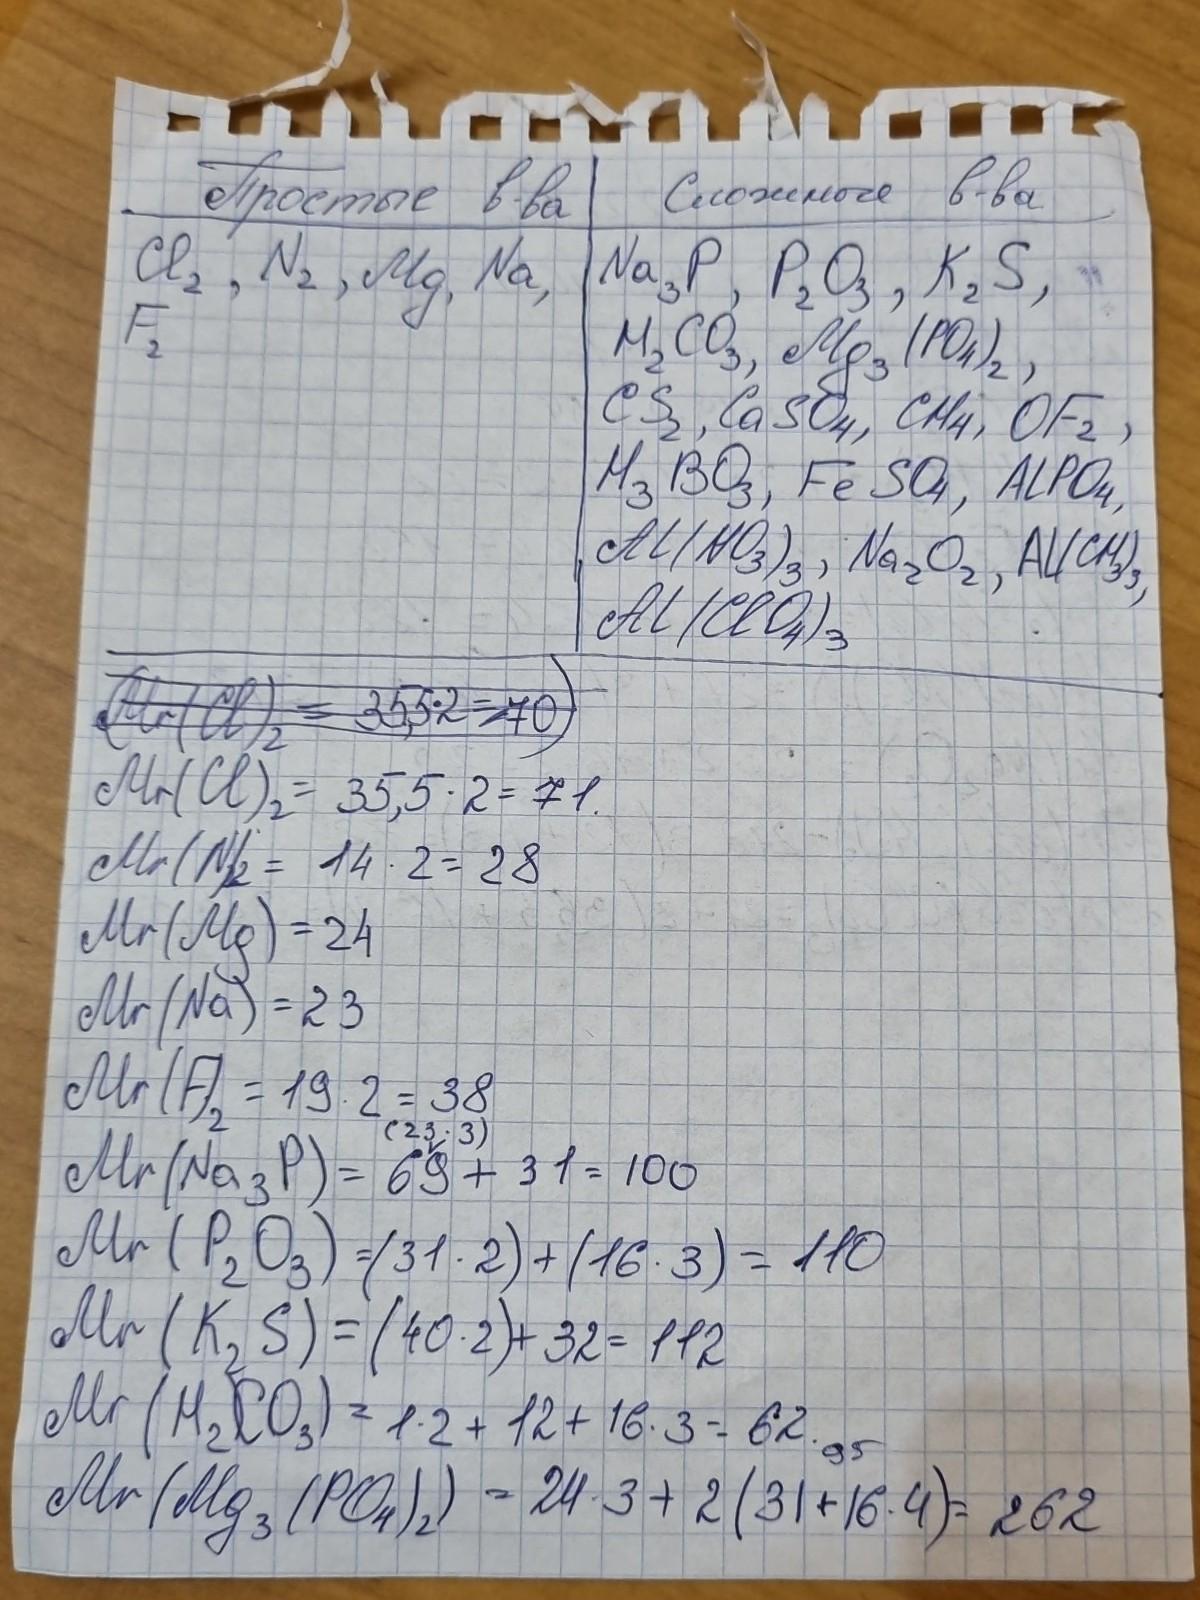 Простые в-ва Сложные в-ва
Cl₂, N₂, Mg, Na,
F₂
Na₃P, P₂O₃, K₂S,
H₂CO₃, Mg₃(PO₄)₂,
CS₂, CaSO₄, CH₄, OF₂,
H₃BO₃, FeSO₄, AlPO₄,
Al(NO₃)₃, Na₂O₂, Al(CH₃)₃,
Al(ClO₄)₃
(Mr(Cl)₂ = 35,5·2=70)
Mr(Cl)₂ = 35,5·2=71.
Mr(N)₂ = 14·2=28
Mr(Mg)=24
Mr(Na)=23
Mr(F)₂ = 19·2=38
(23·3)
Mr(Na₃P)= 69+31=100
Mr(P₂O₃)=(31·2)+(16·3)=110
Mr(K₂S)=(40·2)+32=112
Mr(H₂CO₃)= 1·2+12+16·3=62.
95
Mr(Mg₃(PO₄)₂) = 24·3+2(31+16·4)= 262